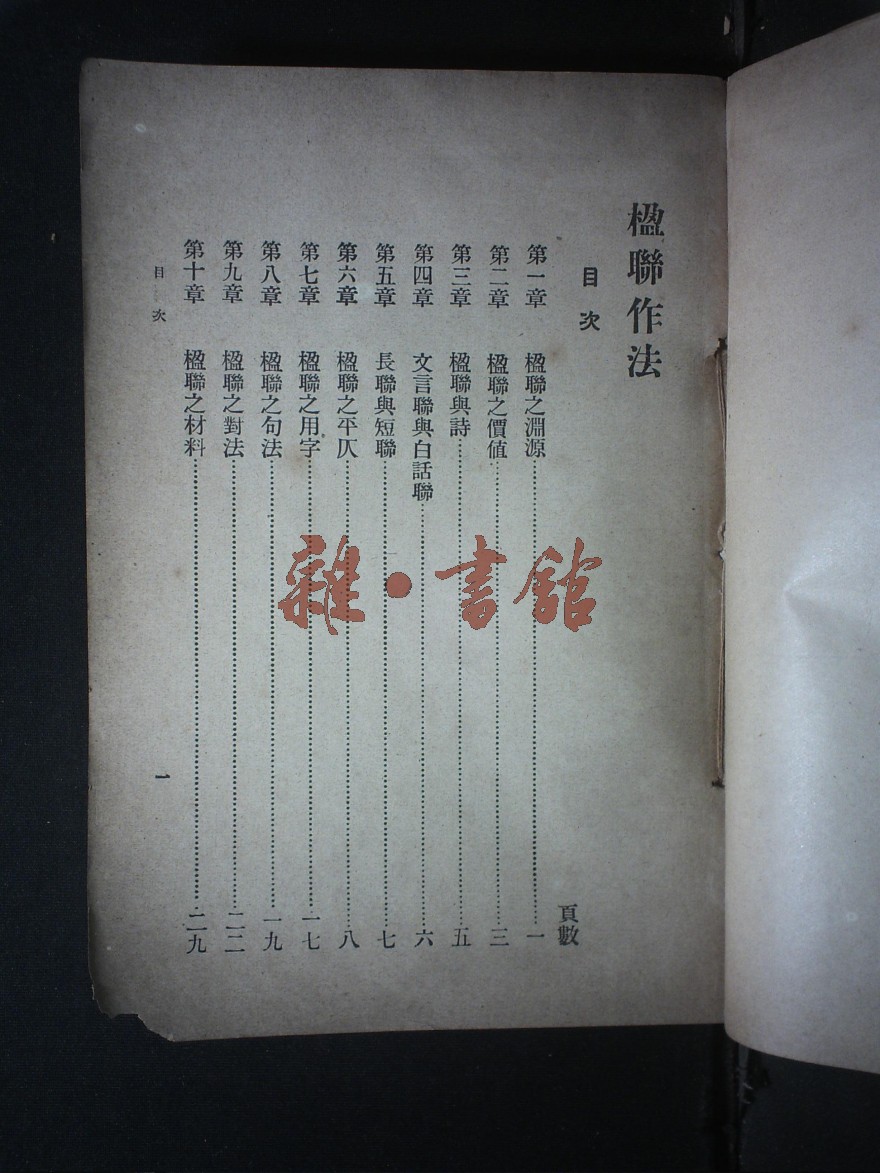 楹聯作法
目次
頁數
第一章 楹聯之淵源……一
第二章 楹聯之價值……三
第三章 楹聯與詩……五
第四章 文言聯與白話聯……六
第五章 長聯與短聯……七
第六章 楹聯之平仄……八
第七章 楹聯之用字……一七
第八章 楹聯之句法……一九
第九章 楹聯之對法……二二
第十章 楹聯之材料……二九
目次 一
雜·書館